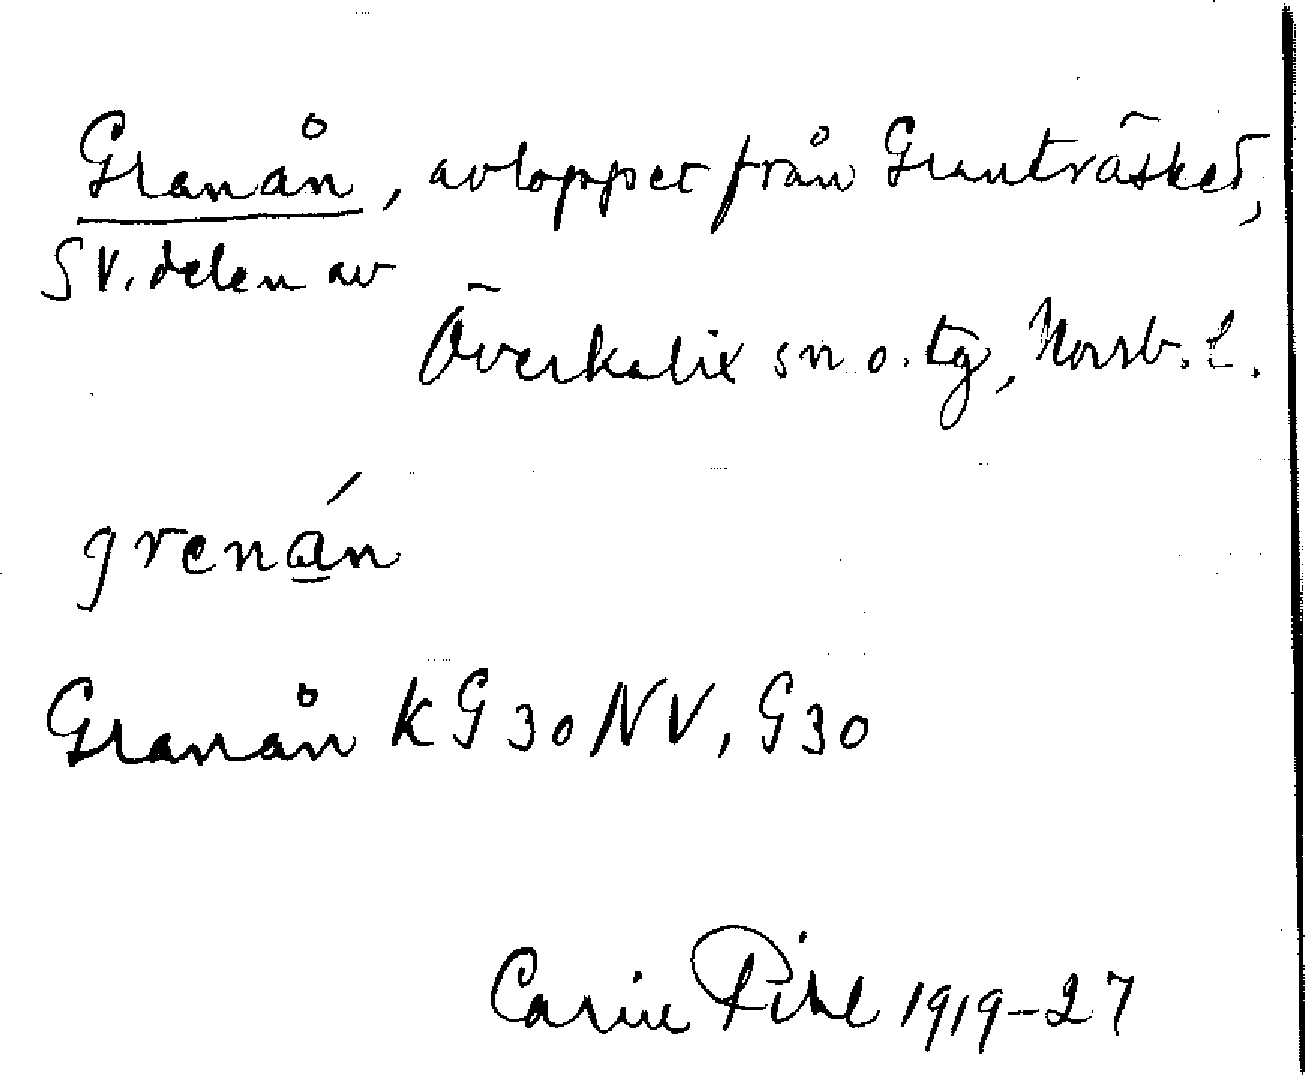 Granån, avloppet från Granträsket,
SV. delen av
Överkalix sn o. tg, Norrb. L.
grenán
Granån K G30 NV, G30
Carin Pihl 1919-27